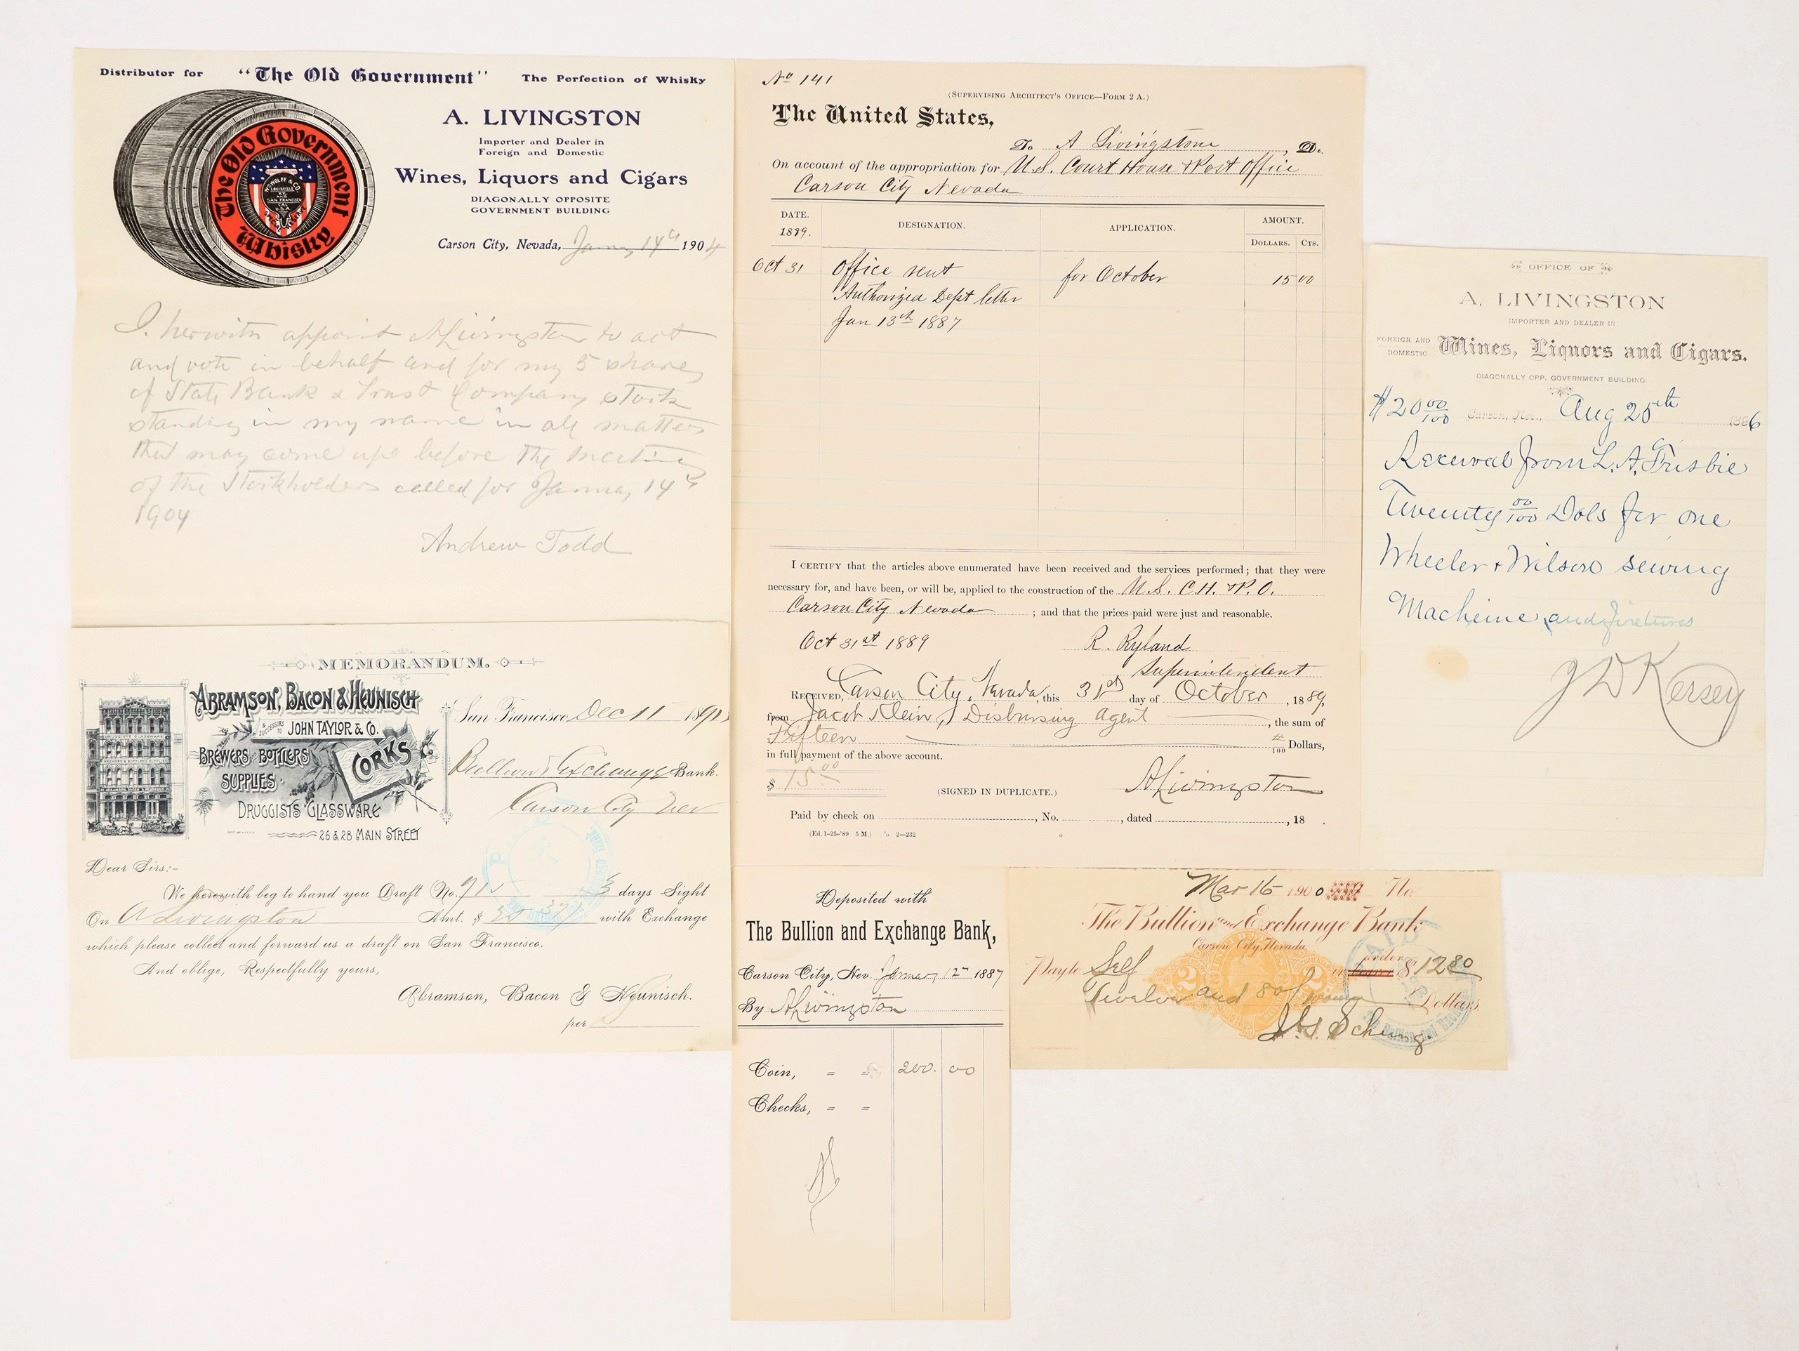 Distributor for "The Old Government" The Perfection of Whisky
The Old Government
Whisky
A. LIVINGSTON
Importer and Dealer in
Foreign and Domestic
Wines, Liquors and Cigars
DIAGONALLY OPPOSITE
GOVERNMENT BUILDING
Carson City, Nevada, 14th 1904
I herewith appoint A Livingston to act
and vote in behalf and for my 5 shares
of State Bank & Trust Company stock
standing in my name in all matters
that may come up before the meeting
of the Stockholders called for January 14th
1904
Andrew Todd
MEMORANDUM.
ABRAMSON, BACON & HEUNISCH
SUCCESSORS TO JOHN TAYLOR & CO.
BREWERS & BOTTLERS
SUPPLIES
CORKS
DRUGGISTS GLASSWARE
26 & 28 MAIN STREET
San Francisco, Dec 11 189
Bullion & Exchange Bank.
Carson City Nev
Dear Sirs:-
We herewith beg to hand you Draft No. days Sight
On A Livingston Amt. $ with Exchange
which please collect and forward us a draft on San Francisco.
And oblige, Respectfully yours,
Abramson, Bacon & Heunisch.
per
No 141
(SUPERVISING ARCHITECT'S OFFICE—FORM 2 A.)
The United States,
To A Livingstone, Dr.
On account of the appropriation for U.S. Court House & Post Office
Carson City Nevada
DATE. DESIGNATION. APPLICATION. AMOUNT.
1889. DOLLARS. CTS.
Oct 31 Office rent for October 15 00
Authorized Dept letter
Jan 13th 1887
I CERTIFY that the articles above enumerated have been received and the services performed; that they were
necessary for, and have been, or will be, applied to the construction of the U.S. C.H. & P.O.
Carson City Nevada; and that the prices paid were just and reasonable.
Oct 31st 1889 R. Ryland
Superintendent
RECEIVED, Carson City, Nevada, this 31st day of October, 1889,
from Jacob Klein, Disbursing Agent, the sum of
Fifteen /100 Dollars,
in full payment of the above account.
$ 15 00
(SIGNED IN DUPLICATE.) A Livingston
Paid by check on , No. , dated , 18 .
(Ed. 1-25-'89 5 M.) 2—232
OFFICE OF
A. LIVINGSTON
IMPORTER AND DEALER IN
FOREIGN AND DOMESTIC Wines, Liquors and Cigars.
DIAGONALLY OPP. GOVERNMENT BUILDING.
$20 00/100 Carson, Nev., Aug 25th 1886
Received from L. A. Frisbie
Twenty 00/100 Dols for one
Wheeler & Wilson sewing
Machine and fixtures
J D Kersey
Deposited with
The Bullion and Exchange Bank,
Carson City, Nev. January 12 1887
By A Livingston
Coin, = 200. 00
Checks, = =
Mar 16 1900 No.
The Bullion and Exchange Bank
Carson City, Nevada
Pay to Self or bearer order $12 80
Twelve and 80/ Dollars